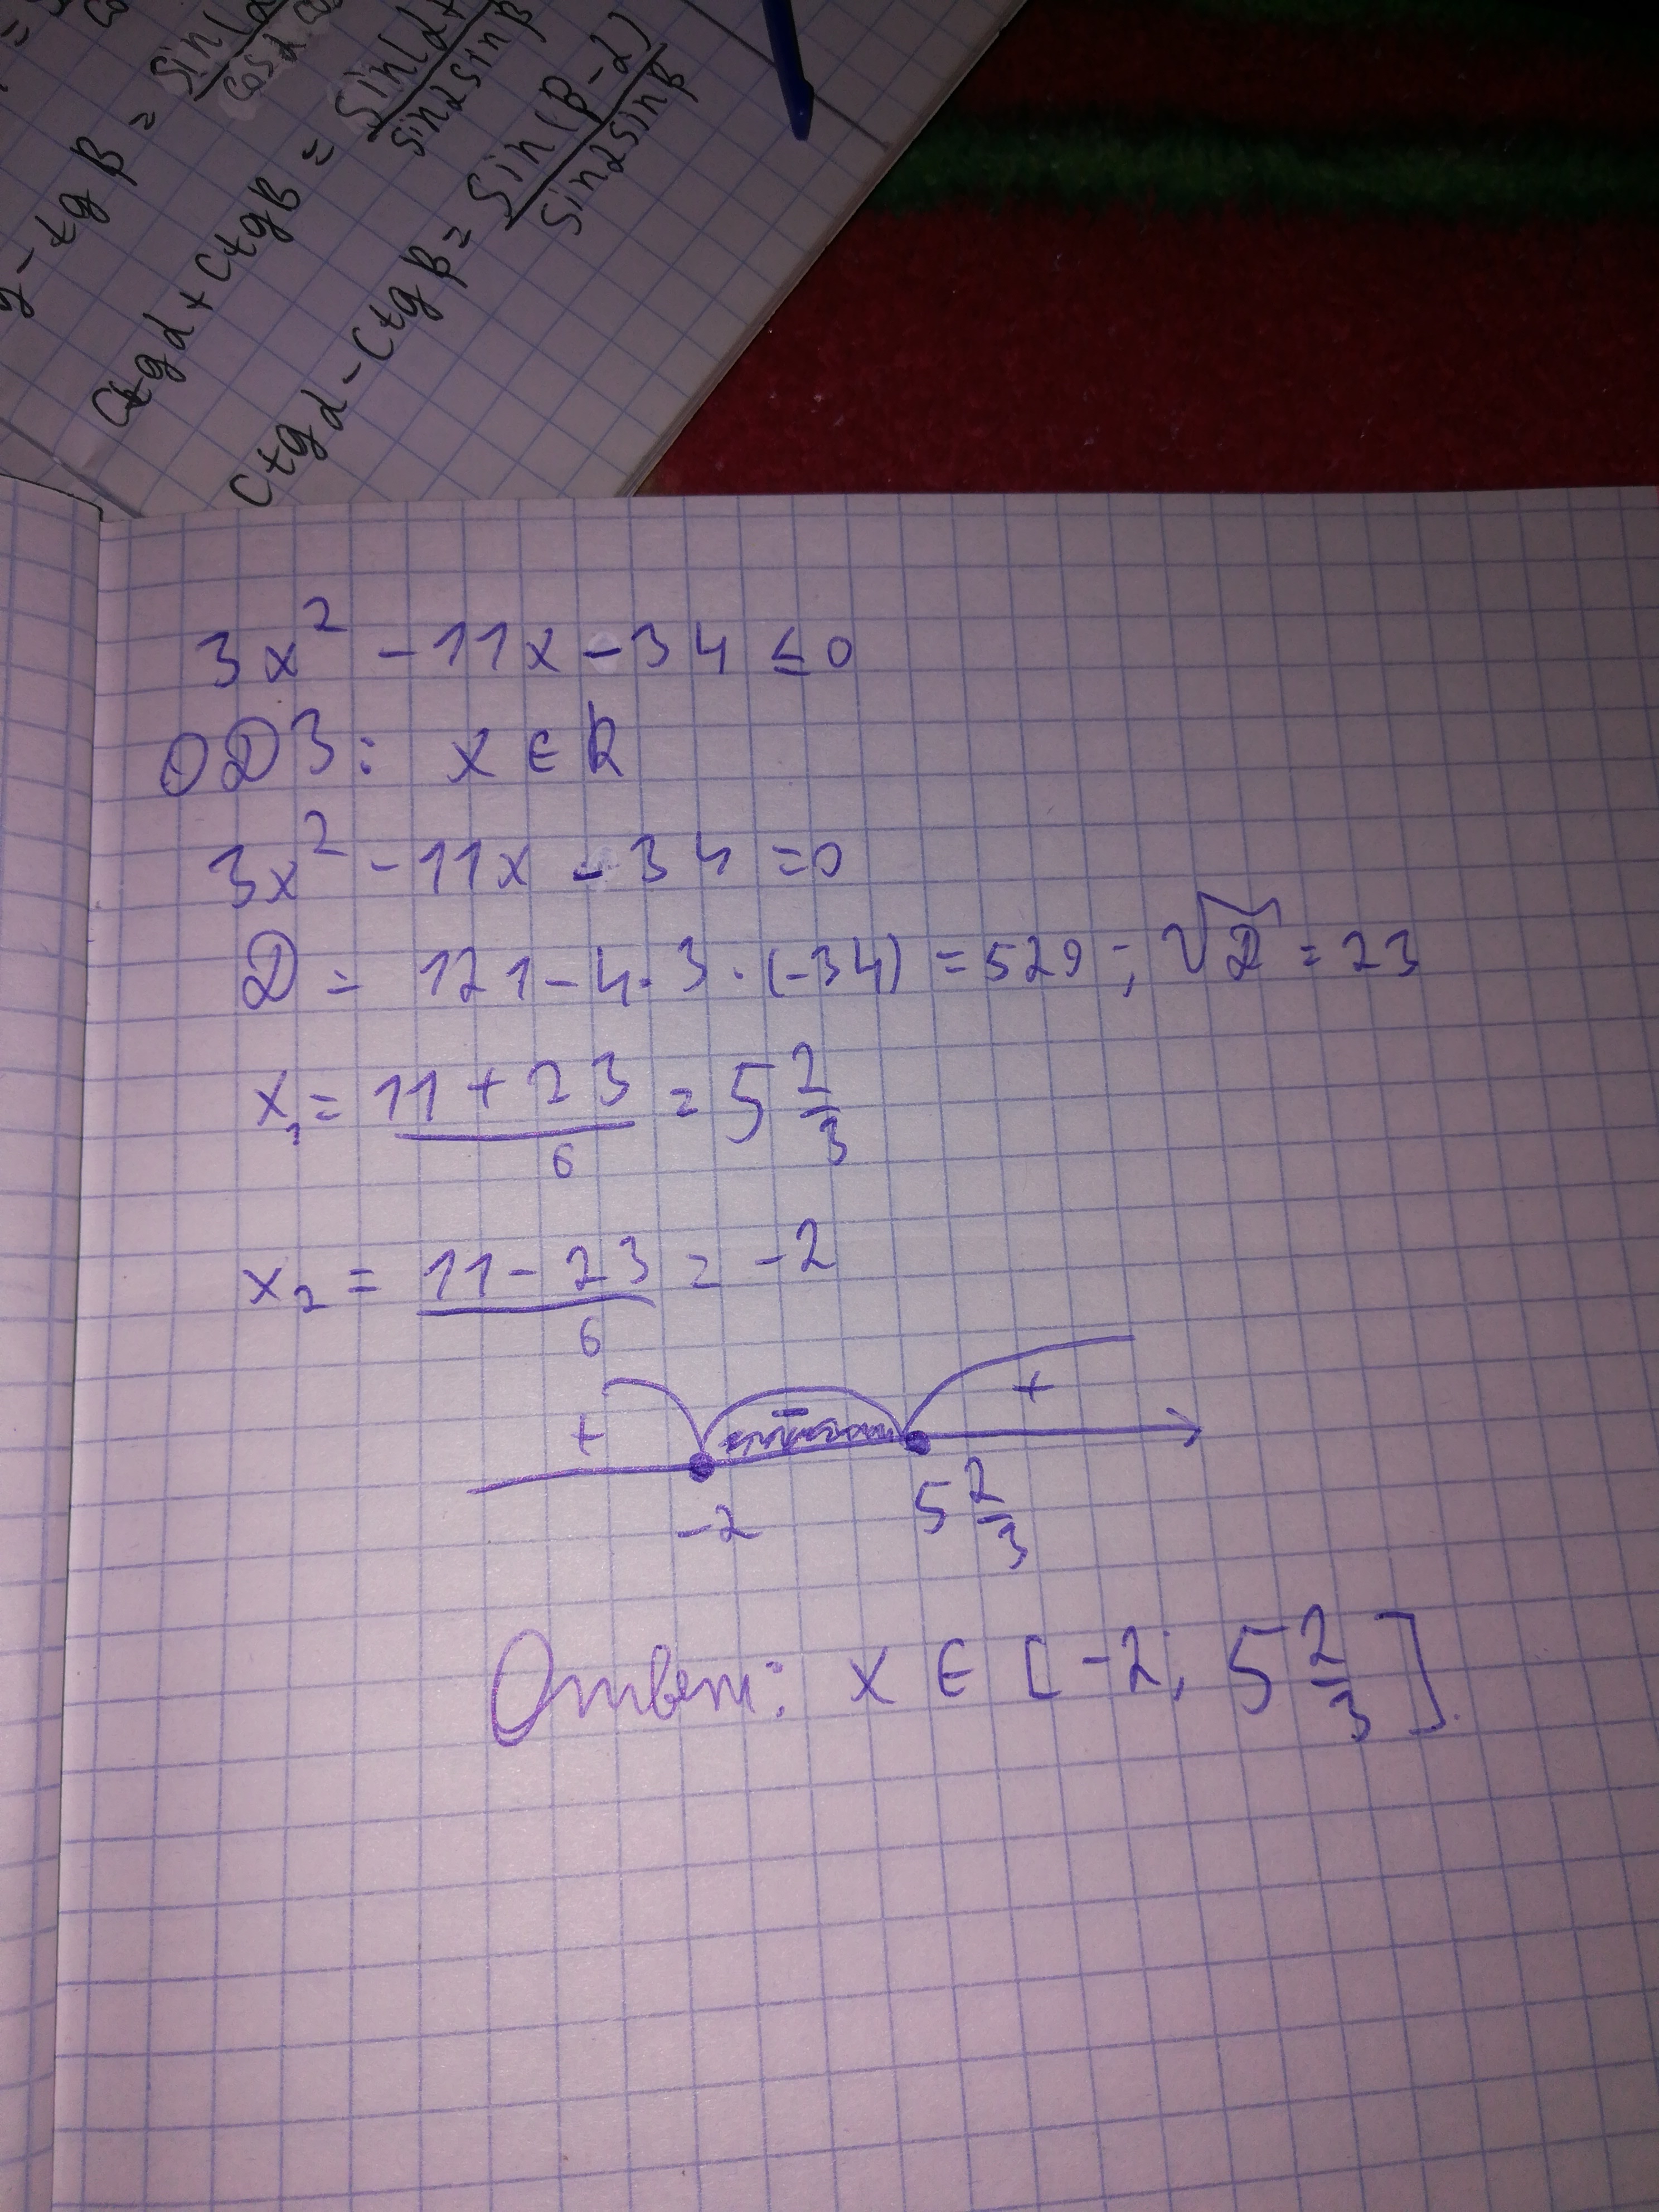 tg β = sin(
cosα
ctgα + ctgβ = sin(α+
sinα sinβ
ctgα - ctgβ = sin(β-α)
sinα sinβ
3x² - 11x - 34 ≤ 0
ОДЗ: x ∈ R
3x² - 11x - 34 = 0
D = 121 - 4 · 3 · (-34) = 529 ; √D = 23
x₁ = (11 + 23)/6 = 5 2/3
x₂ = (11 - 23)/6 = -2
+ - +
-2 5 2/3
Ответ: x ∈ [-2; 5 2/3].